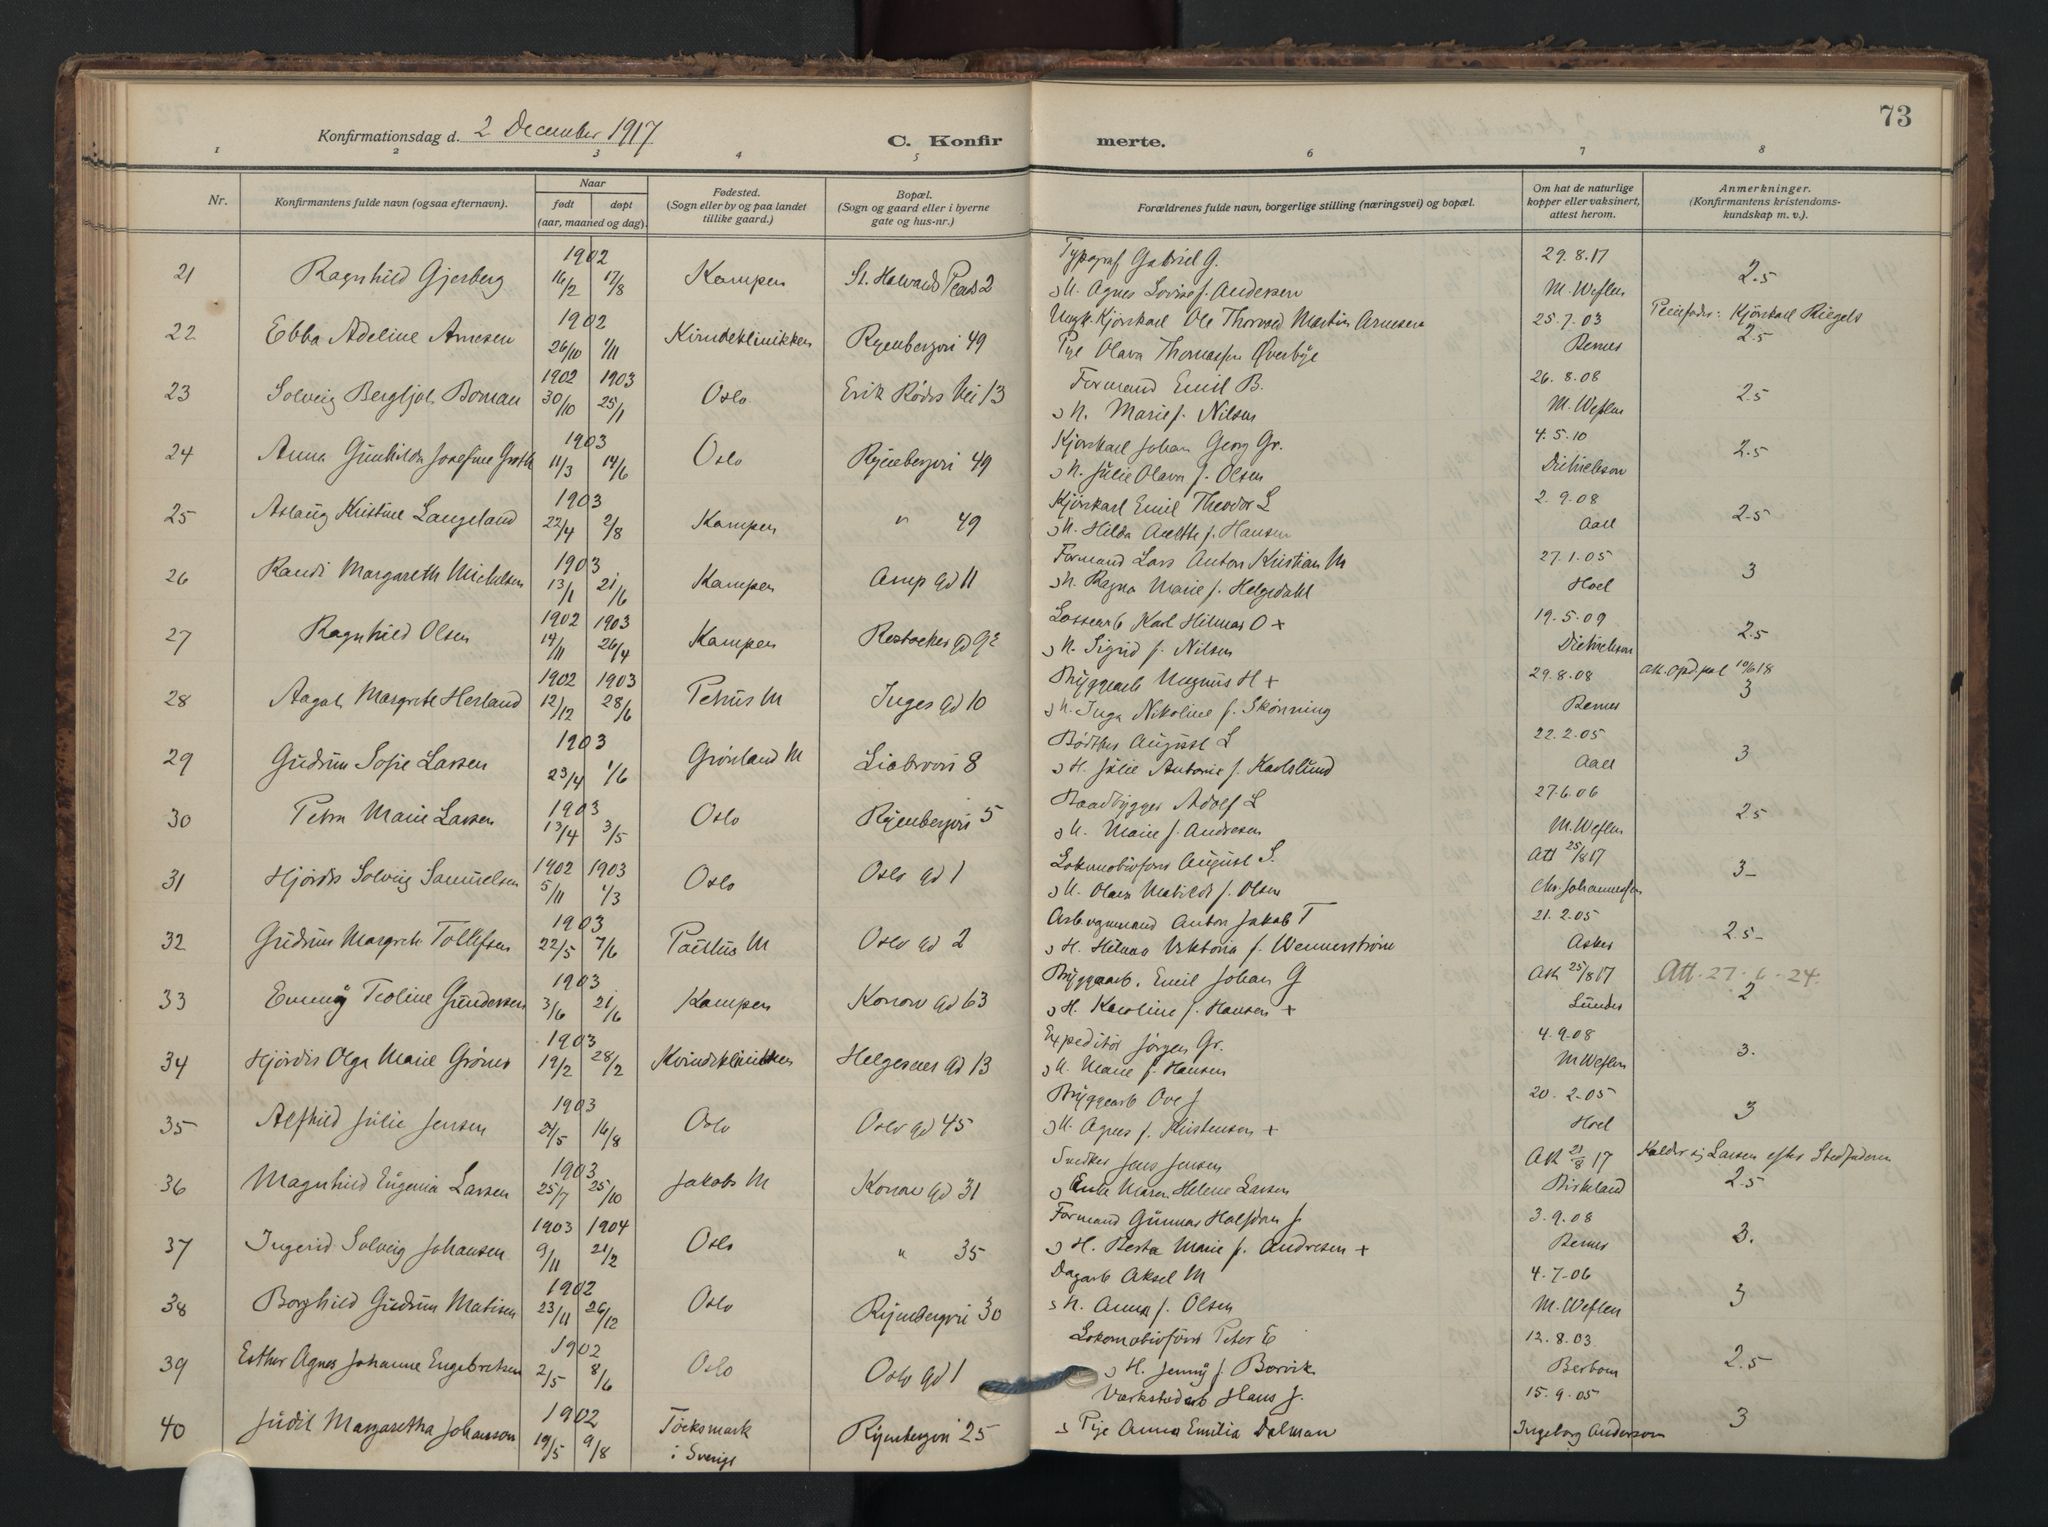 73
Konfirmationsdag d. 2 December 1917
C. Konfir merte.
1 2 3 4 5 6 7 8
Nr.
Konfirmantens fulde navn (ogsaa efternavn).
Naar
født døpt
(aar, maaned og dag).
Fødested.
(Sogn eller by og paa landet
tillike gaard.)
Bopæl.
(Sogn og gaard eller i byerne
gate og hus-nr.)
Forældrenes fulde navn, borgerlige stilling (næringsvei) og bopæl.
Om hat de naturlige
kopper eller vaksinert,
attest herom.
Anmerkninger.
(Konfirmantens kristendoms-
kundskap m. v.)
1902 Typograf Gabriel G. 29.8.17
21 Ragnhild Gjerberg 16/2 17/8 Kampen St. Halvards 2 Agnes Lovise f. Andersen M. Weflen 2.5
1902 Ungk. Kjørekarl Ole Thorvald Martin Arnesen 25.7.03 Pleiefader: Kjørekarl Riegels
22 Ebba Adeline Arnesen 26/10 1/11 Kvindeklinikken Ryenbergvei 49 Pije Olava Thomassen Øverbye Berner 2.5
1902 1903 Formand Emil B. 26.8.08
23 Solveig Bergljot Boman 30/10 25/1 Oslo Erik Rødes Vei 13 Marie f. Nilsen M. Weflen 2.5
1903 Kjørekarl Johan Georg Gr. 4.5.10
24 Anna Gunhilda Josefine Groth 11/3 14/6 Oslo Ryenbergvei 49 Julie Olava f. Olsen Dietrichson 2.5
1903 Kjørekarl Emil Theodor L 2.9.08
25 Aslaug Kristine Langeland 22/4 2/8 Kampen " 49 Hilda f. Hansen Aall 2.5
1903 Formand Lars Anton Kristian M 27.1.05
26 Randi Margareth Mickelsen 13/1 21/6 Kampen Amp gd 11 Ragna Marie f. Helgedahl Hoel 3
1902 1903 Lossearb Karl Hilmar O + 19.5.09
27 Ragnhild Olsen 14/11 26/4 Kampen gd Sigrid f. Nilsen Dietrichson 2.5
1902 1903 Bryggearb Magnus H + 29.8.08 10/6 18
28 Aagot Margrete Hesland 12/12 28/6 Petrus M Inges gd 10 Inga Nikoline f. Skønning Berner 3
1903 Bødker August L 22.2.05
29 Gudrun Sofie Larsen 23/4 1/6 Grønland M Liabrvei 8 H. Julie Antonie f. Karlslund Aall 3
1903 Baadbygger Adolf L 27.6.06
30 Petra Marie Larsen 13/4 3/5 Oslo Ryenbergvei 5 Marie f. Andresen M. Weflen 2.5
1902 1903 Lokomobilfører August S. Att 25/8 17
31 Hjørdis Solveig Samuelsen 5/11 1/3 Oslo Oslo gd 1 Matilde f. Olsen Chr. Johannessen 3-
1903 Arb ogmand Anton Jakob T 21.2.05
32 Gudrun Margrete Tollefsen 22/5 7/6 Paulus M Oslo gd 2 H. Helma Viktoria f. Wennerstrøm Asker 2.5-
1903 Bryggearb. Emil Johan G Att 25/8 17 Att. 27-6-24.
33 Emmy Teoline Gundersen 3/6 21/6 Kampen Konow gd 63 H. Karoline f. Hansen + Lunder 2
1903 Expeditør Jørgen Gr. 4.9.08
34 Hjørdis Olga Marie Grøner 19/2 28/2 Kvindeklinikken Helgesens gd 13 Marie f. Hansen M Weflen 3.
1903 Bryggearb Ove J 20.2.05
35 Alfhild Julie Jensen 24/5 16/8 Oslo Oslo gd 45 Agnes f. Kristensen + Hoel 3
1903 Snedker Jens Jensen Att 21/8 17 Kalder sig Larsen efter Stedfaderen
36 Magnhild Eugenia Larsen 25/7 25/10 Jakobs M Konow gd 31 Enke Maren Helene Larsen Birkeland 2.5
1903 1904 Formand Gunnar Halfdan J. 3.9.08
37 Ingerid Solveig Johansen 9/11 21/2 Oslo " 35 H. Berta Marie f. Andresen + Berner 3.
1902 Dagarb Aksel M 4.7.06
38 Borghild Gudrun Matisen 23/11 26/12 Oslo Ryenbergvei 30 Anna f. Olsen M. Weflen 3
1902 Lokomobilfører Peter E 12.8.03
39 Esther Agnes Johanne Engebretsen 2/5 8/6 Oslo Oslo gd 1 H. Jenny f. Borvik Berbom 2.5
1902 Værkstedarb Hans J. 15.9.05
40 Judit Margaretha Johanson 19/5 9/8 Töcksmark i Sverige Ryenbergvei 25 Pije Anna Emilia Dalman Ingeborg Anderson 3